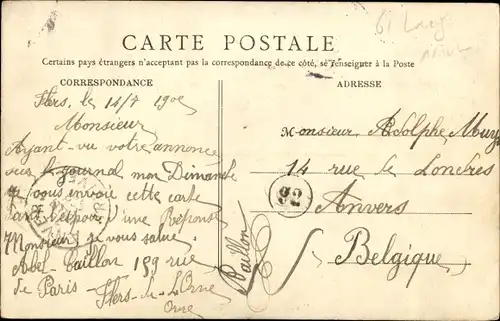 CARTE POSTALE
Certains pays étrangers n'acceptant pas la correspondance de ce côté, se renseigner à la Poste
CORRESPONDANCE
Flers, le 14/7 190
Monsieur
Ayant vu votre annonce
sur le journal mon Dimanche
je vous envoi cette carte
dans l'espoir d'une Réponse
Monsieur je vous salue
Abel Taillon 189 rue
de Paris - Flers-de-L'Orne
Orne
ADRESSE
Monsieur Adolphe
14 rue de Londres
Anvers
Belgique
92